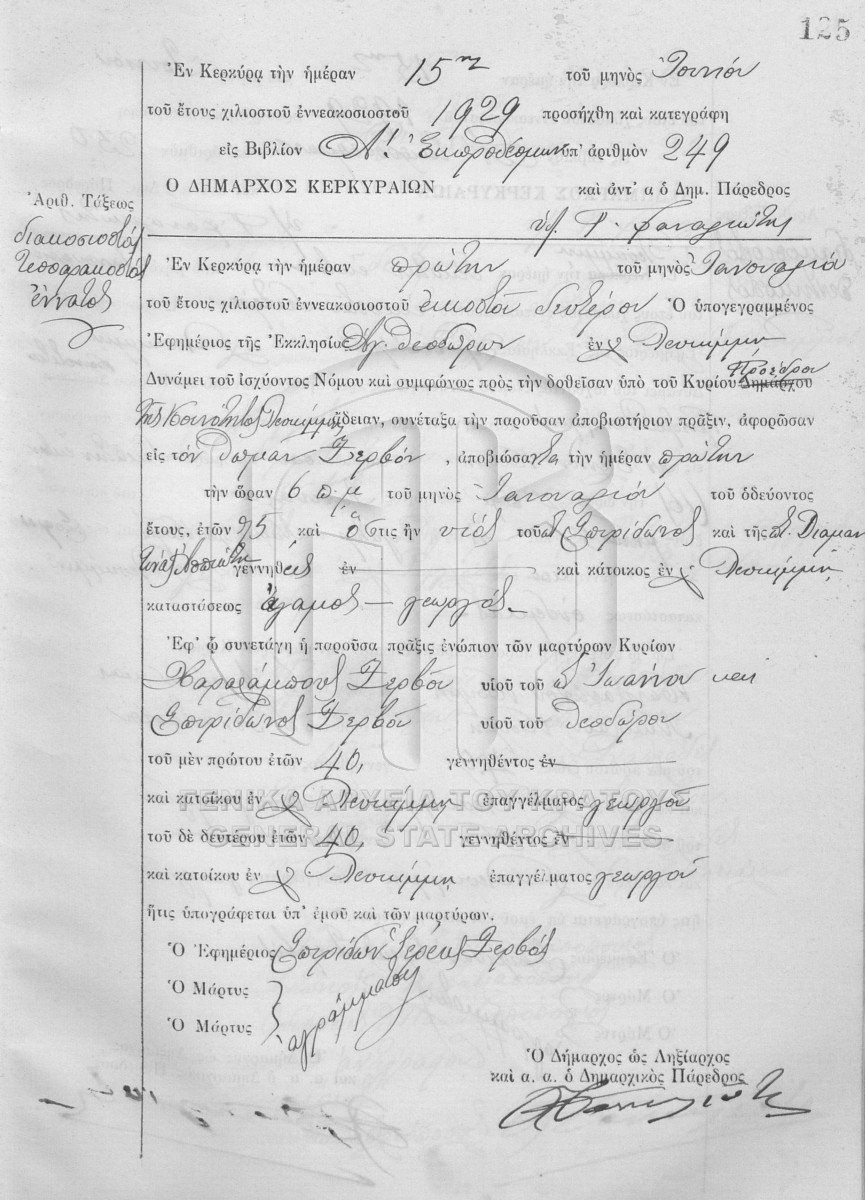 125
Ἐν Κερκύρᾳ τὴν ἡμέραν 15ην τοῦ μηνὸς Ἰουνίου
τοῦ ἔτους χιλιοστοῦ ἐννεακοσιοστοῦ 1929 προσήχθη καὶ κατεγράφη
εἰς Βιβλίον Α! Ἐκπροθέσμων ὑπ' ἀριθμὸν 249
Ο ΔΗΜΑΡΧΟΣ ΚΕΡΚΥΡΑΙΩΝ καὶ ἀντ' α ὁ Δημ. Πάρεδρος
Ἀριθ. Τάξεως
διακοσιοστός
τεσσαρακοστός
ἔννατος
Ἐν Κερκύρᾳ τὴν ἡμέραν πρώτην τοῦ μηνὸς Ἰανουαρίου
τοῦ ἔτους χιλιοστοῦ ἐννεακοσιοστοῦ εἰκοστοῦ δευτέρου Ὁ ὑπογεγραμμένος
Ἐφημέριος τῆς Ἐκκλησίας Ἁγ. Θεοδώρων ἐν Λευκίμμῃ
Δυνάμει τοῦ ἰσχύοντος Νόμου καὶ συμφώνως πρὸς τὴν δοθεῖσαν ὑπὸ τοῦ Κυρίου Δημάρχου Προέδρου
τῆς Κοινότητος Λευκίμμης ἄδειαν, συνέταξα τὴν παροῦσαν ἀποβιωτήριον πρᾶξιν, ἀφορῶσαν
εἰς τόν Θωμᾶν Ζερβόν, ἀποβιώσαντα τὴν ἡμέραν πρώτην
τὴν ὥραν 6 π.μ. τοῦ μηνὸς Ἰανουαρίου τοῦ ὁδεύοντος
ἔτους, ἐτῶν 75 καὶ ὅστις ἦν υἱὸς τοῦ Σπυρίδωνος καὶ τῆς Διαμαν
γεννηθείς ἐν καὶ κάτοικος ἐν Λευκίμμῃ
καταστάσεως ἄγαμος – γεωργός
Ἐφ' ᾧ συνετάγη ἡ παροῦσα πρᾶξις ἐνώπιον τῶν μαρτύρων Κυρίων
Χαραλάμπους Ζερβοῦ υἱοῦ τοῦ Ἰωάννου καὶ
Σπυρίδωνος Ζερβοῦ υἱοῦ τοῦ Θεοδώρου
τοῦ μὲν πρώτου ἐτῶν 40, γεννηθέντος ἐν
καὶ κατοίκου ἐν Λευκίμμῃ ἐπαγγέλματος γεωργοῦ
ΓΕΝΙΚΑ ΑΡΧΕΙΑ ΤΟΥ ΚΡΑΤΟΥΣ
GENERAL STATE ARCHIVES
τοῦ δὲ δευτέρου ἐτῶν 40, γεννηθέντος ἐν
καὶ κατοίκου ἐν Λευκίμμῃ ἐπαγγέλματος γεωργοῦ
ἥτις ὑπογράφεται ὑπ' ἐμοῦ καὶ τῶν μαρτύρων.
Ὁ Ἐφημέριος Σπυρίδων Ἱερεὺς Ζερβός
Ὁ Μάρτυς
Ὁ Μάρτυς
ἀγράμματοι
Ὁ Δήμαρχος ὡς Ληξίαρχος
καὶ α. α. ὁ Δημαρχικὸς Πάρεδρος